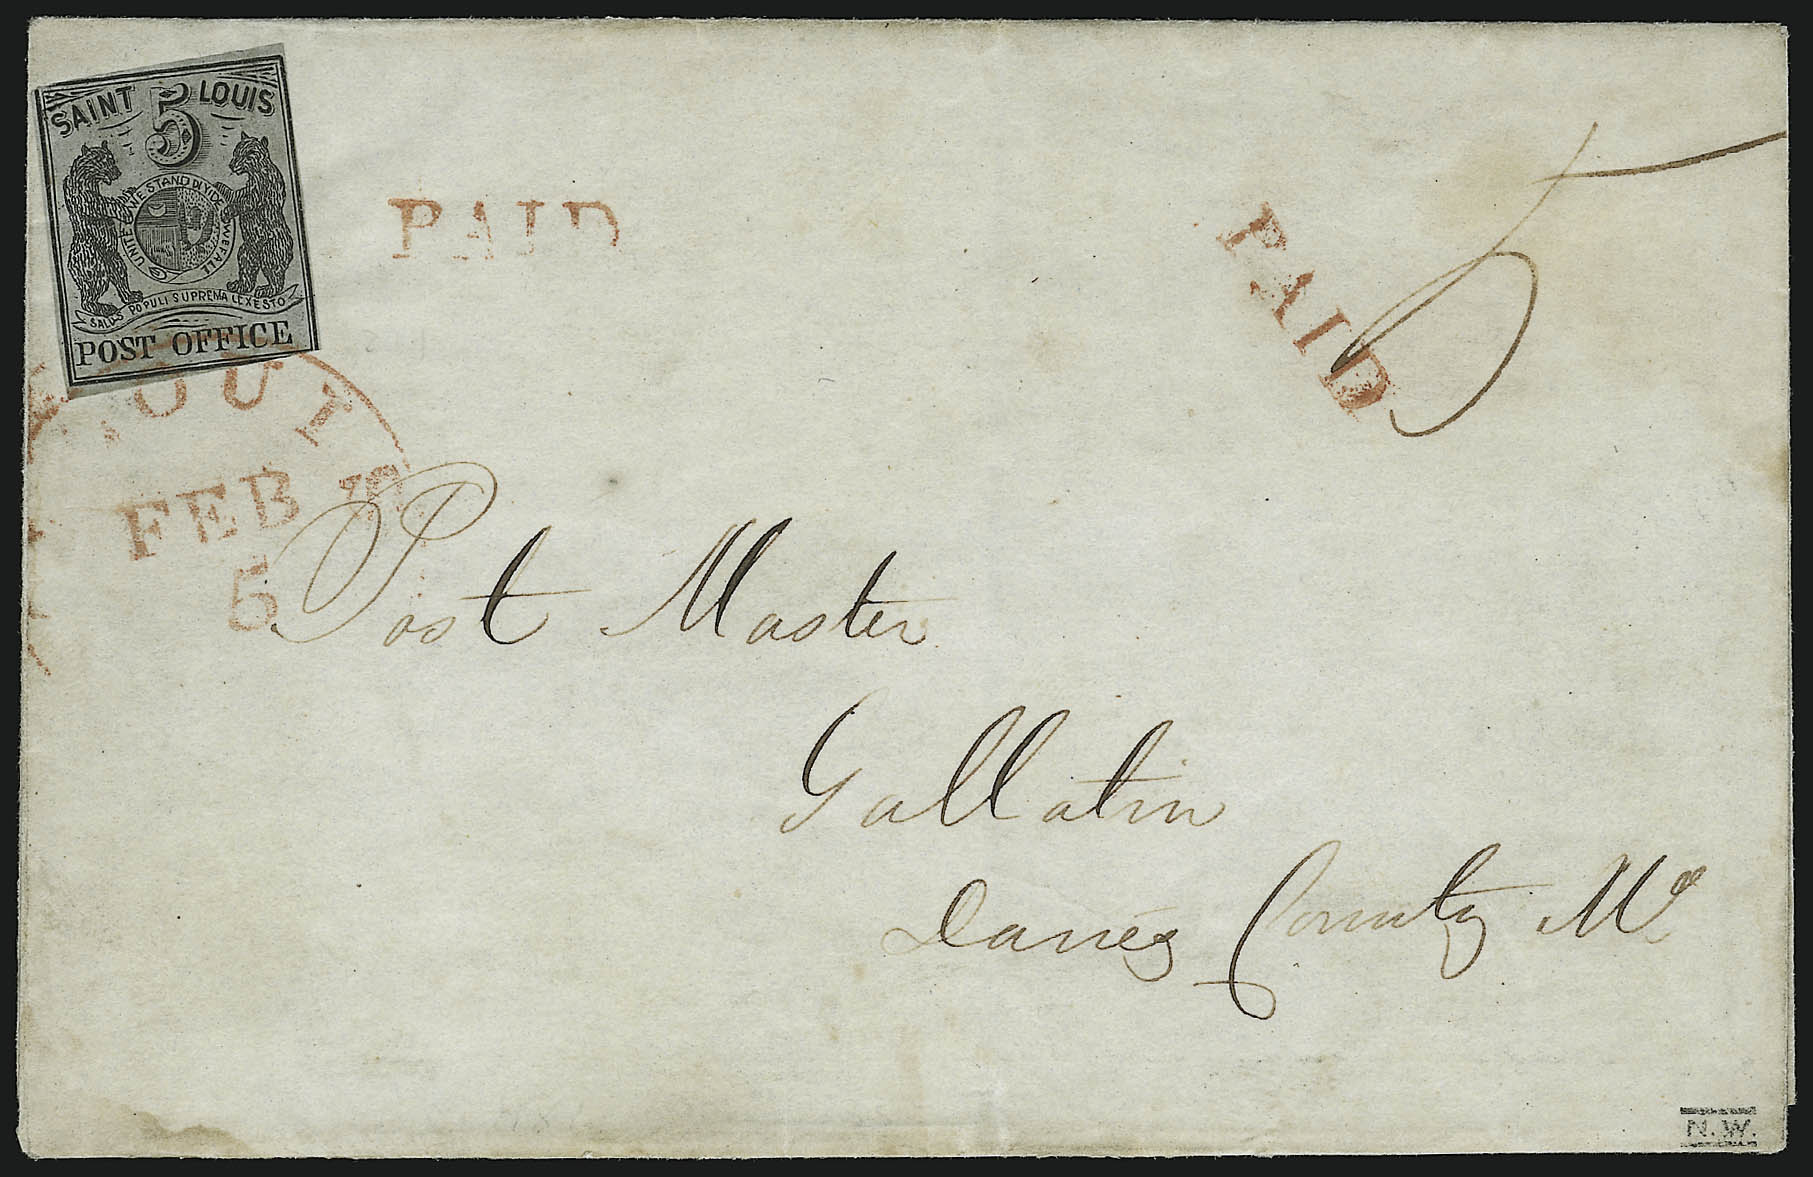 SAINT 5 LOUIS
UNITED WE STAND DIVIDED WE FALL
SALUS POPULI SUPREMA LEX ESTO
POST OFFICE
PAID
PAID
5
LOUIS
FEB
5
Post Master
Gallatin
Davies County Mo
N.W.